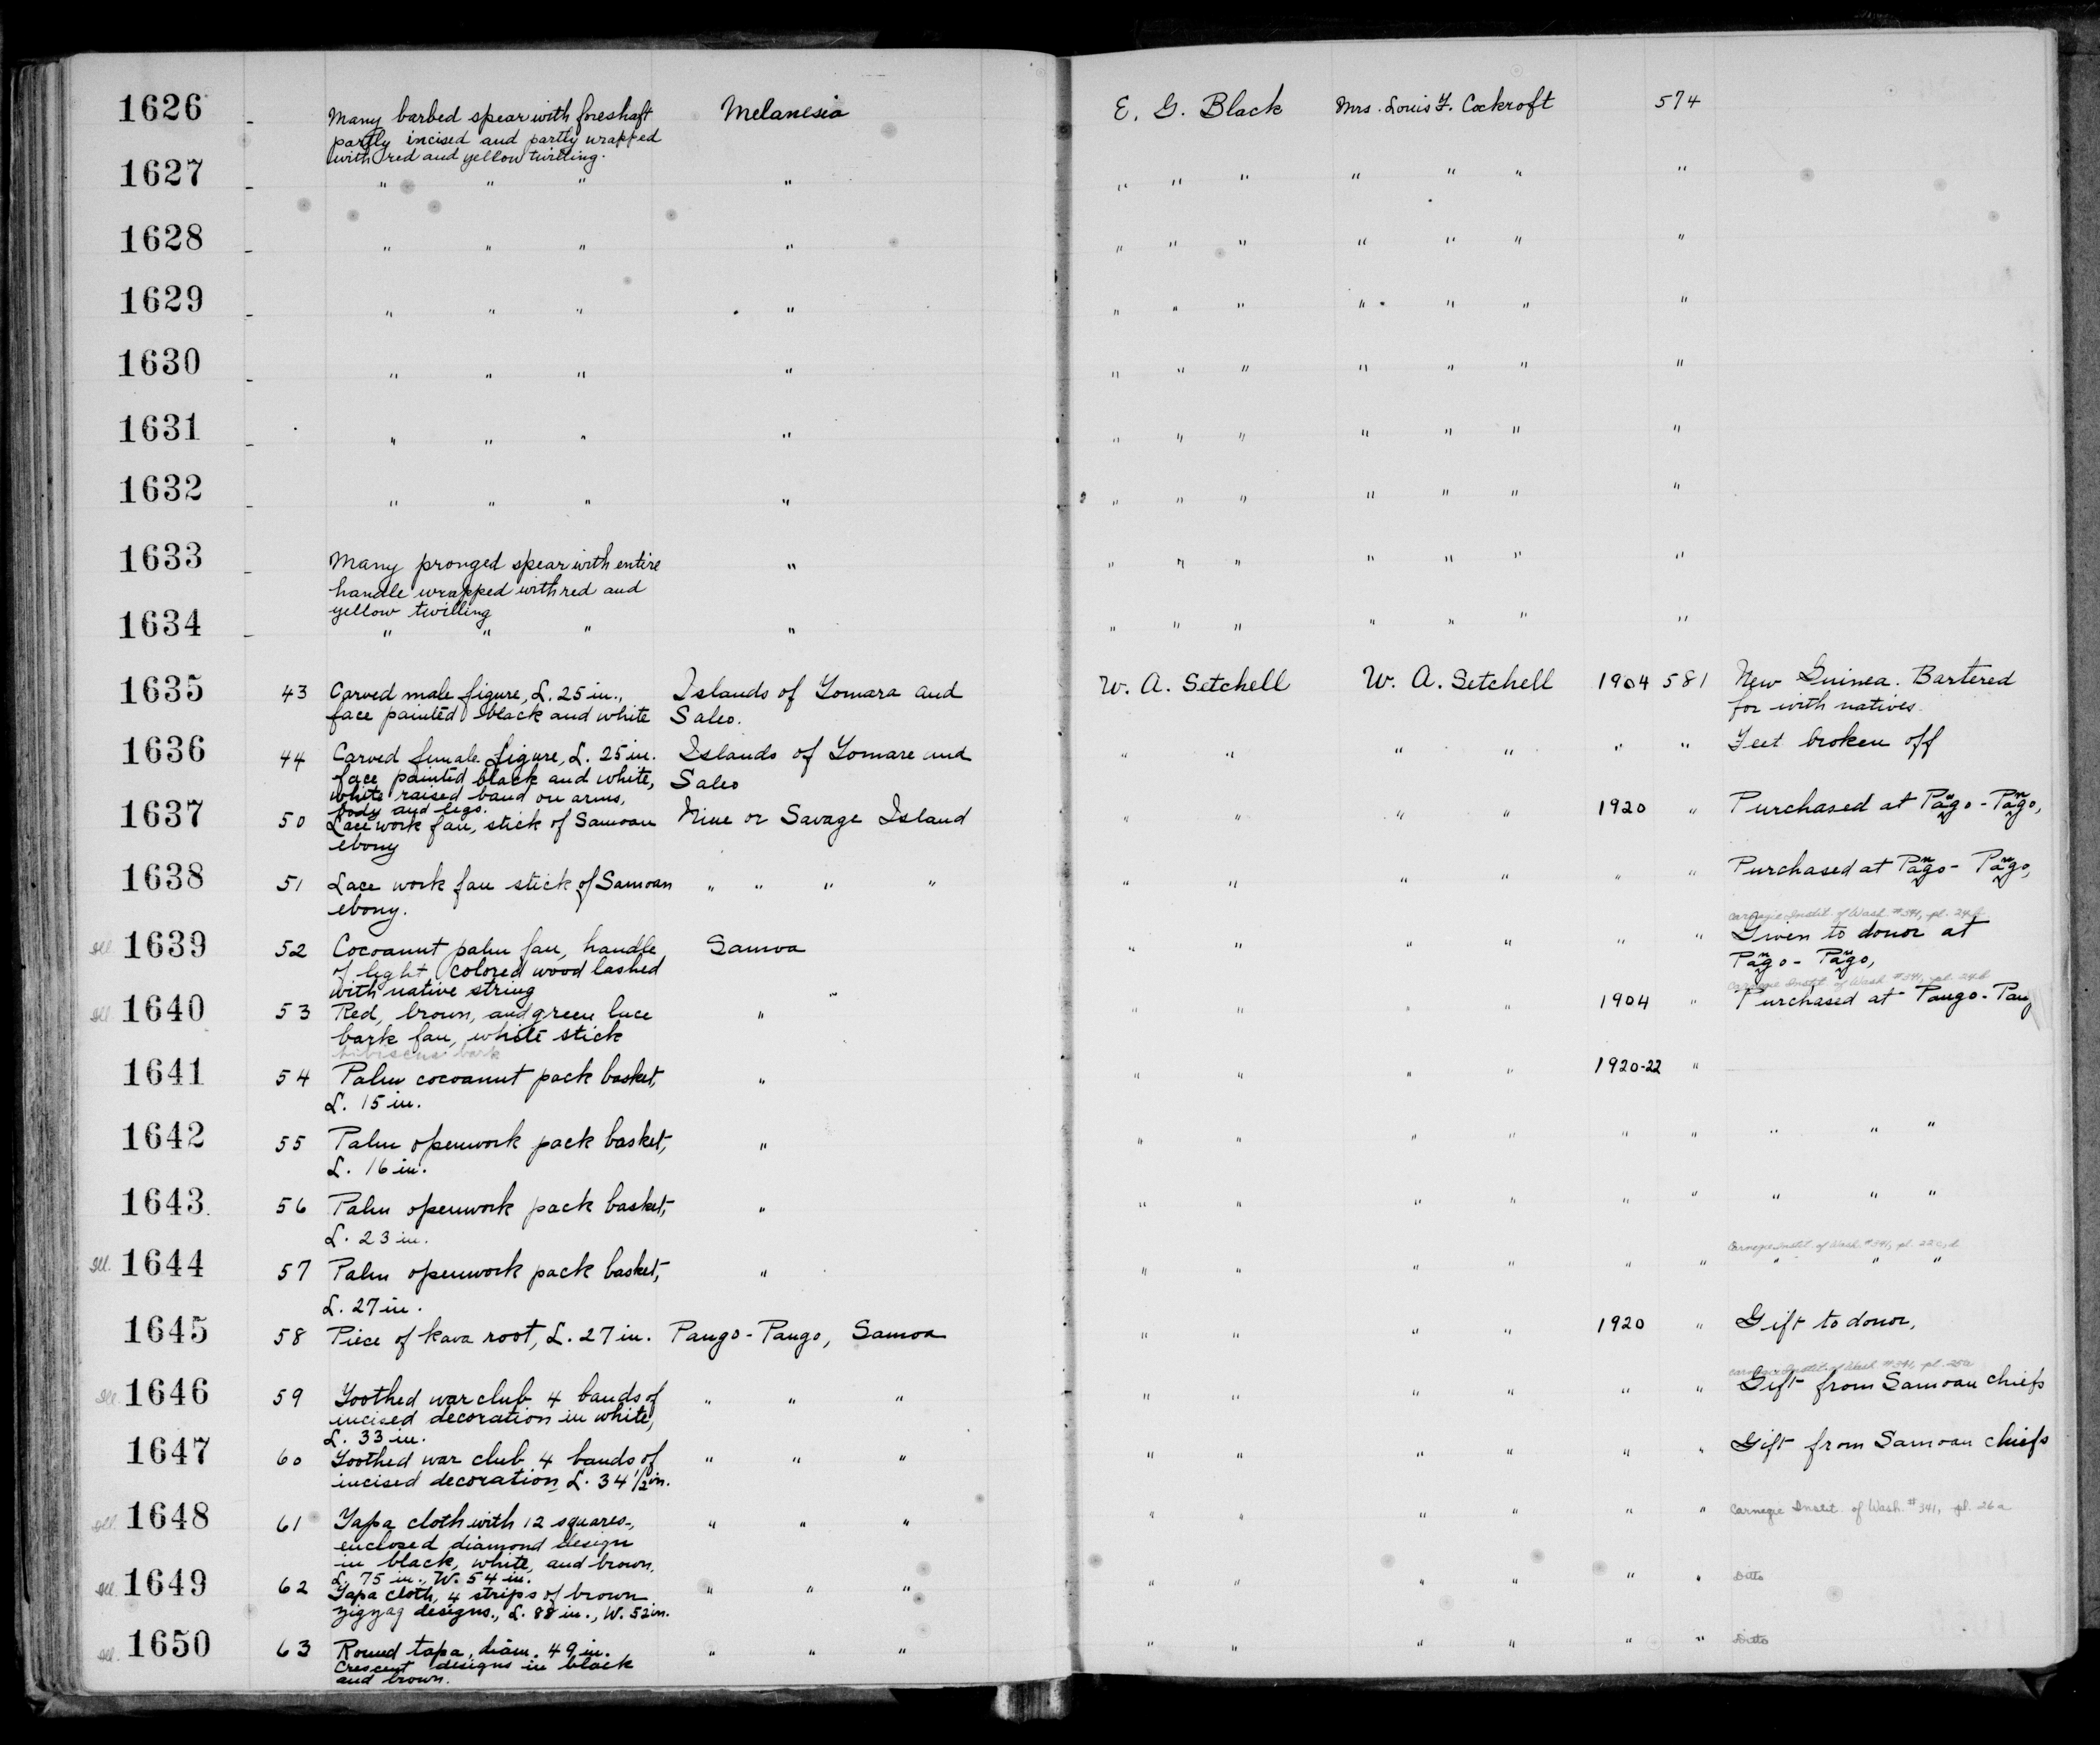 1626 - Many barbed spear with foreshaft Melanesia E. G. Black Mrs. Louis F. Cockroft 574
partly incised and partly wrapped
with red and yellow twilling.
1627 - " " " " " " " " " " "
1628 - " " " " " " " " " " "
1629 - " " " " " " " " " " "
1630 - " " " " " " " " " " "
1631 - " " " " " " " " " " "
1632 - " " " " " " " " " " "
1633 - Many pronged spear with entire " " " " " " " "
handle wrapped with red and
yellow twilling
1634 - " " " " " " " " " " "
1635 43 Carved male figure, L. 25 in., Islands of Yomara and W. A. Setchell W. A. Setchell 1904 581 New Guinea. Bartered
face painted black and white Saleo. for with natives.
1636 44 Carved female figure, L. 25 in. Islands of Yomare and " " " " " " Feet broken off
face painted black and white, Saleo
white raised band on arms,
body and legs.
1637 50 Lace work fan, stick of Samoan Niue or Savage Island " " " " 1920 " Purchased at Pango-Pango,
ebony
1638 51 Lace work fan stick of Samoan " " " " " " " " " " Purchased at Pango-Pango,
ebony.
Carnegie Instit. of Wash. #341, pl. 24
Ill. 1639 52 Cocoanut palm fan, handle Samoa " " " " " " Given to donor at
of light colored wood lashed Pango-Pango,
with native string
Carnegie Instit. of Wash #341, pl. 24
Ill. 1640 53 Red, brown, and green lace " " " " " 1904 " Purchased at Pango-Pang
bark fan, white stick
hibiscus bark
1641 54 Palm cocoanut pack basket, " " " " " 1920-22 "
L. 15 in.
1642 55 Palm openwork pack basket, " " " " " " " " " "
L. 16 in.
1643 56 Palm openwork pack basket, " " " " " " " " " "
L. 23 in.
Carnegie Instit. of Wash. #341, pl. 25
Ill. 1644 57 Palm openwork pack basket, " " " " " " " " " "
L. 27 in.
1645 58 Piece of kava root, L. 27 in. Pango-Pango, Samoa " " " " 1920 " Gift to donor,
Carnegie Instit. of Wash #341, pl. 25
Ill. 1646 59 Toothed war club 4 bands of " " " " " " " " " Gift from Samoan chiefs
incised decoration in white,
L. 33 in.
1647 60 Toothed war club 4 bands of " " " " " " " " " Gift from Samoan chiefs
incised decoration, L. 34 1/2 in.
Ill. 1648 61 Tapa cloth with 12 squares, " " " " " " " " " Carnegie Instit. of Wash. #341, pl. 26a
enclosed diamond design
in black, white, and brown.
L. 75 in., W. 54 in.
Ill. 1649 62 Tapa cloth, 4 strips of brown " " " " " " " " " Ditto
zigzag designs., L. 88 in., W. 52 in.
Ill. 1650 63 Round tapa, diam. 49 in. " " " " " " " " " Ditto
Crescent designs in black
and brown.